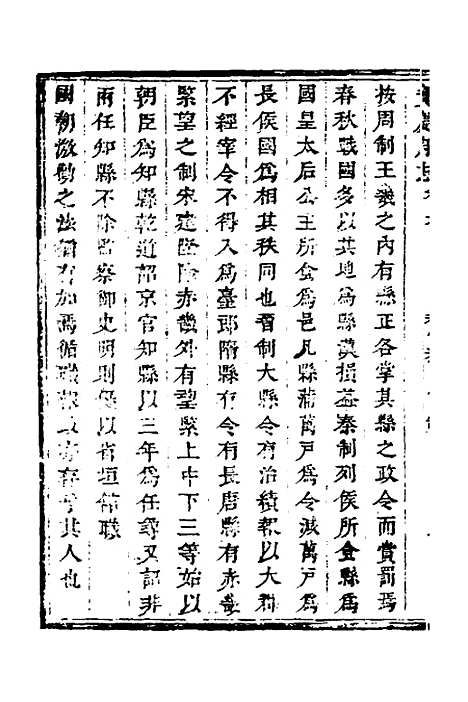 按周制王畿之內有縣正各掌其縣之政令而賞罰焉
春秋戰國多以其地爲縣漢損益秦制列侯所食縣爲
國皇太后公主所食爲邑凡縣滿萬戶爲令減萬戶爲
長侯國爲相其秩同也晉制大縣令有治績報以大郡
不經宰令不得入爲臺郎隋縣有令有長唐縣有赤畿
緊望之制宋建隆除赤畿外有望緊上中下三等始以
朝臣爲知縣乾道詔京官知縣以三年爲任尋又詔非
兩任知縣不除監察御史明則優以省垣
國初激勸之法有加焉循職報政其人也